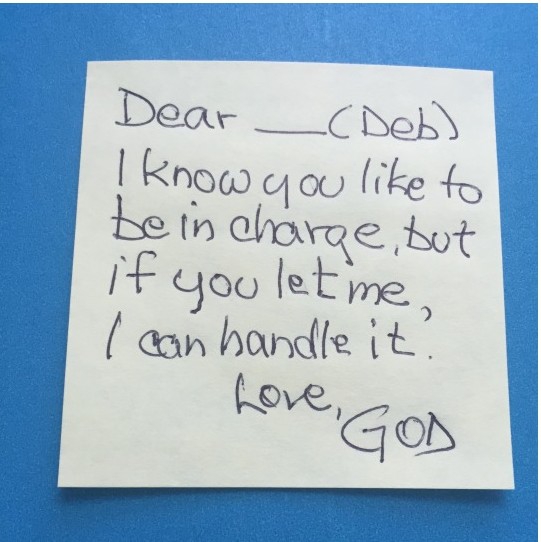 Dear ___(Deb)
I know you like to
be in charge, but
if you let me,
I can handle it.
Love,
GOD